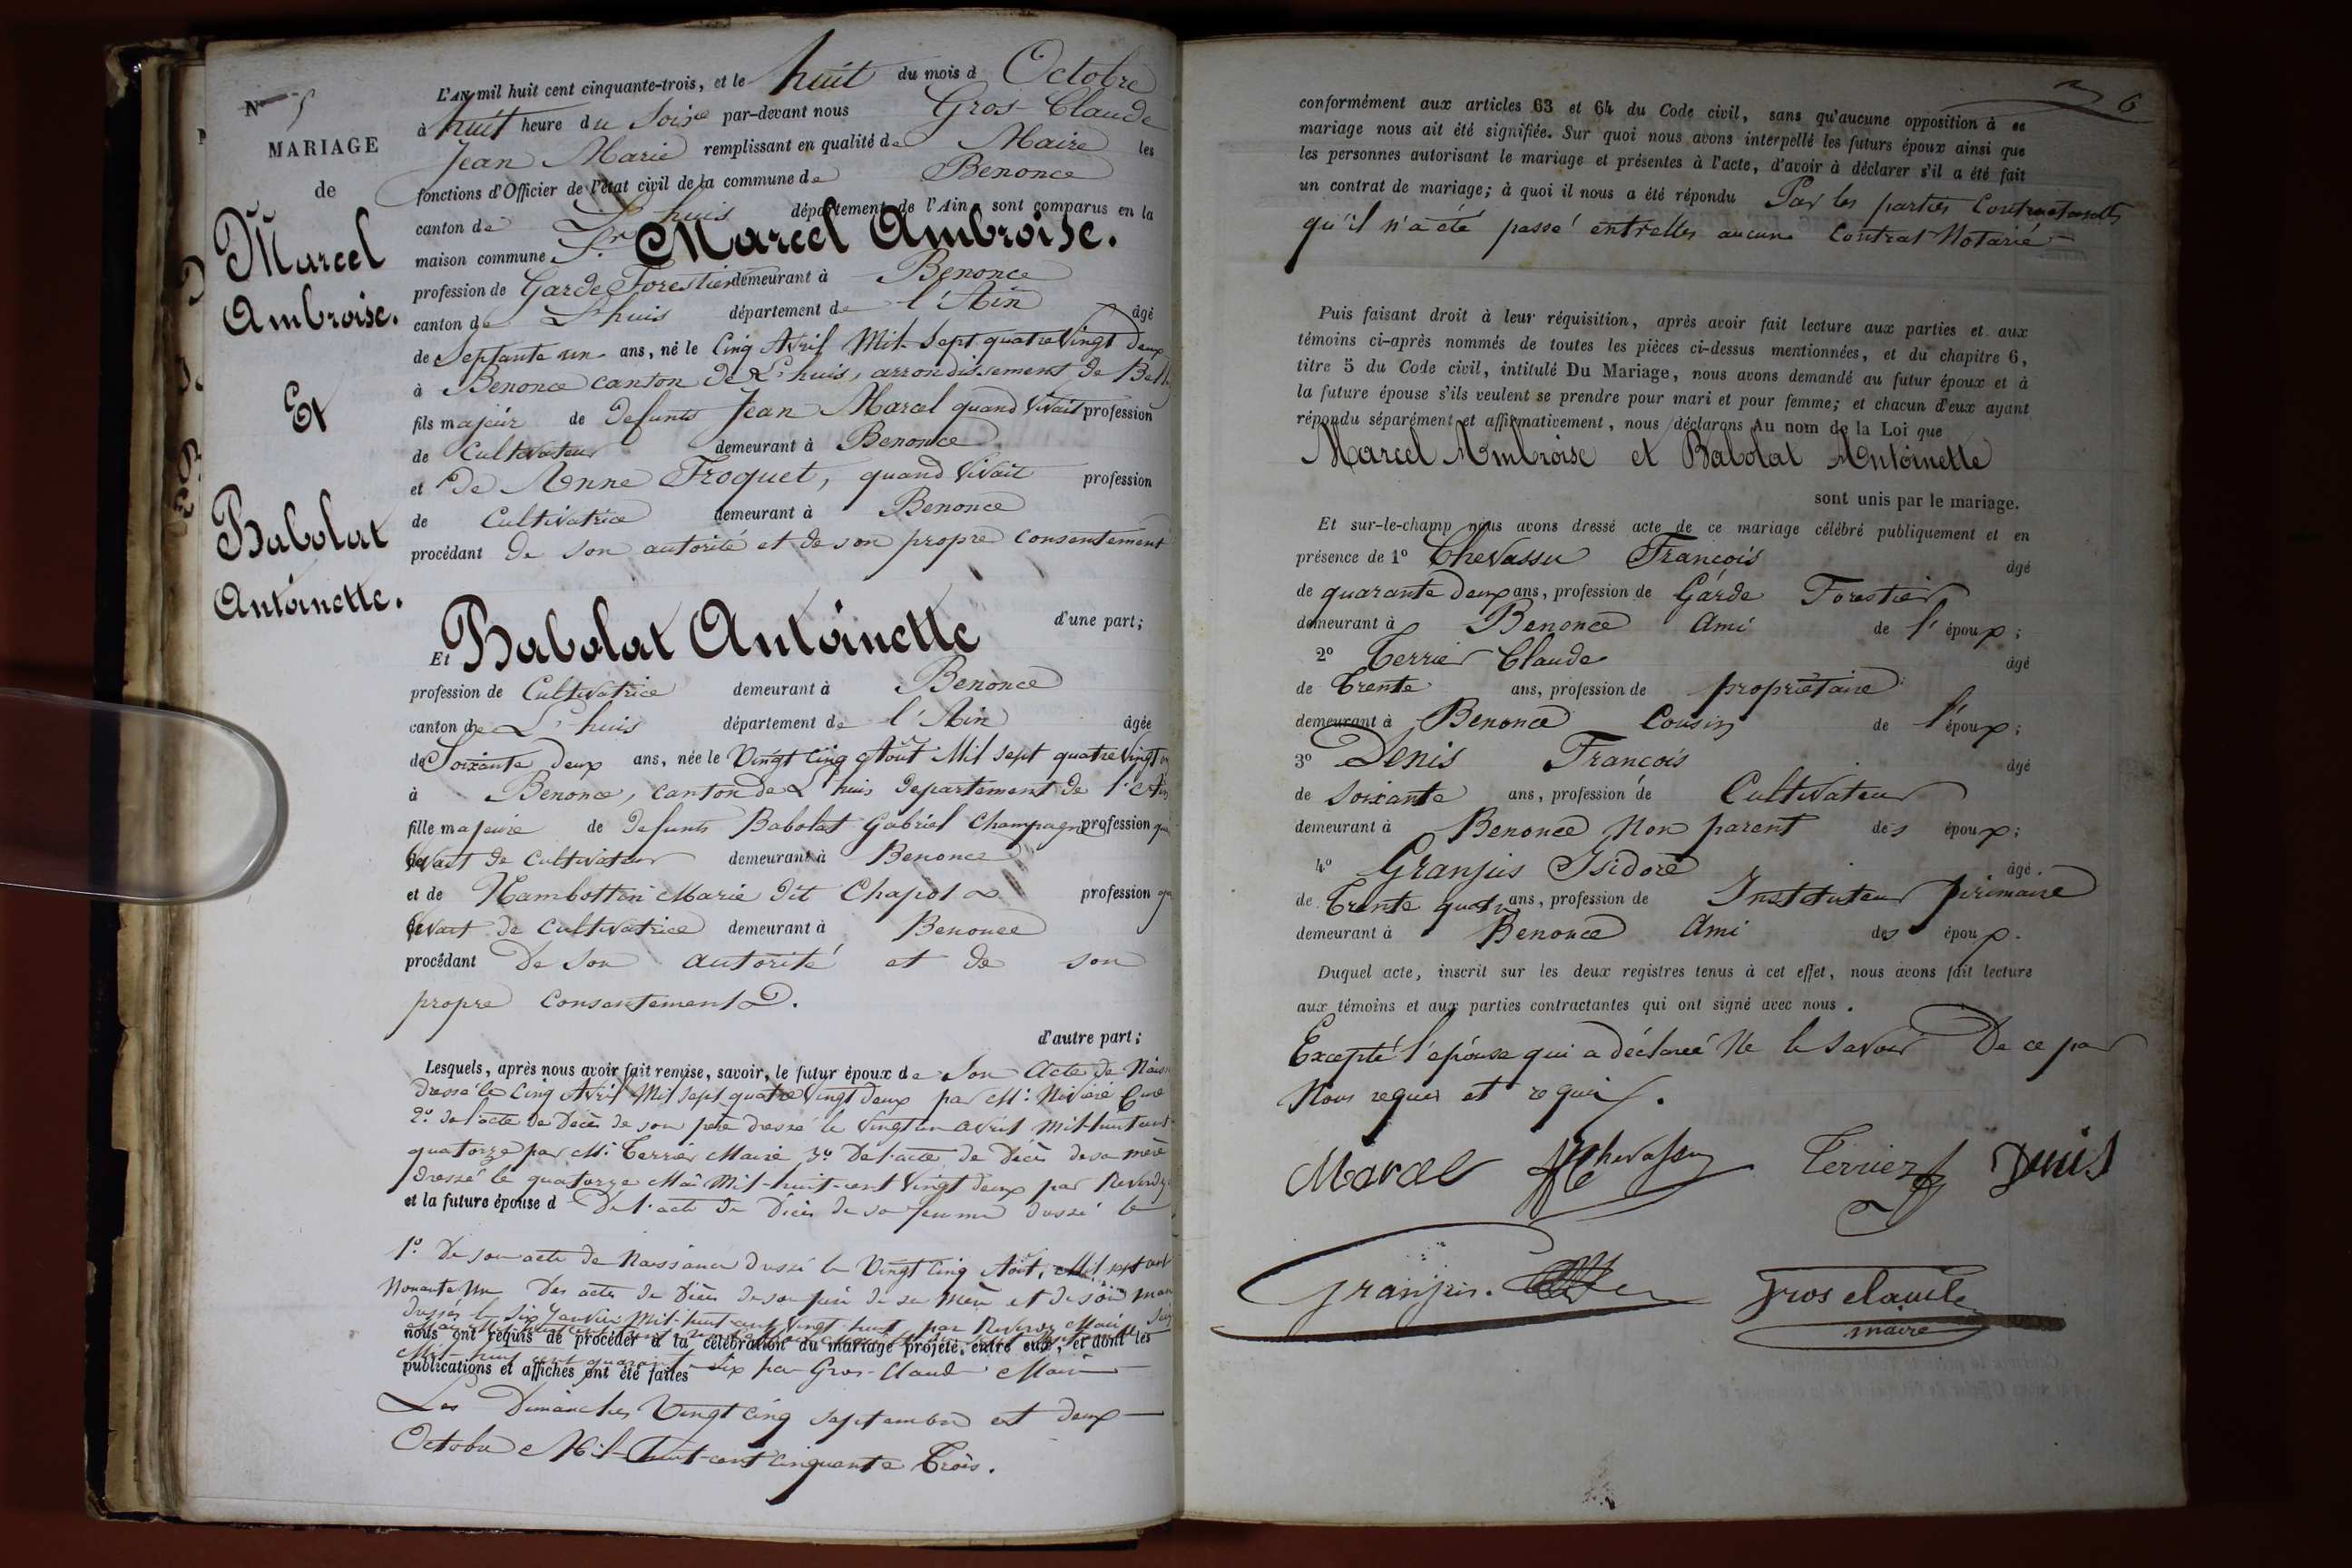 N° 5
MARIAGE
de
Marcel
Ambroise.
Et
Babolat
Antoinette.
L'AN mil huit cent cinquante-trois, et le huit du mois d Octobre
à huit heure du Soir par-devant nous Gros-Claude
Jean Marie remplissant en qualité de Maire les
fonctions d'Officier de l'état civil de la commune de Benonce
canton de L'huis département de l'Ain, sont comparus en la
maison commune Sr. Marcel Ambroise.
profession de Garde Forestier demeurant à Benonce
canton de L'huis département de l'Ain âgé
de Septante un ans, né le Cinq Avril Mil Sept quatre Vingt Deux
à Benonce canton de L'huis, arrondissement de
fils majeur de defunts Jean Marcel quand Vivait profession
de Cultivateur demeurant à Benonce
et de Anne Froquet, quand Vivait profession
de Cultivatrice demeurant à Benonce
procédant de son autorité et de son propre Consentement
d'une part;
Et Babolat Antoinette
profession de Cultivatrice demeurant à Benonce
canton de L'huis département de l'Ain âgée
de Soixante deux ans, née le Vingt Cinq Aout Mil Sept quatre Vingt
à Benonce, canton de L'huis departement de l'Ain
fille majeure de defunts Babolat Gabriel Champagne profession
de Cultivateur demeurant à Benonce
et de Marie dit Chapot profession
de Cultivatrice demeurant à Benonce
procédant De Son autorité et de son
propre Consentement.
d'autre part;
Lesquels, après nous avoir fait remise, savoir, le futur époux de Son Acte de
dressé le Cinq Avril Mil Sept quatre Vingt deux par Mr. Curé
2° de l'acte de Décès de son père dressé le Vingt un avril Mil-huit cent
quatorze par Mr. Terrier Maire 3° De l'acte de Décès de sa mère
dressé le quatorze Mai Mil-huit-cent Vingt deux par
et la future épouse d De l'acte de Décès de sa femme dressé le
1° De son acte de Naissance dressé le Vingt Cinq Aout, Mil sept cent
Nonante Un Des actes de Décès de son père de sa Mère et de son
dressés le Six Janvier Mil-huit-cent Vingt huit par Maire
nous ont requis de procéder à la célébration du mariage projeté, entre eux, et dont les
Mil-huit cent quarante-Six par Gros-Claude Maire
publications et affiches ont été faites
Les Dimanches Vingt Cinq Septembre et deux
Octobre Mil-huit-cent Cinquante Trois.
6
conformément aux articles 63 et 64 du Code civil, sans qu'aucune opposition à ce
mariage nous ait été signifiée. Sur quoi nous avons interpellé les futurs époux ainsi que
les personnes autorisant le mariage et présentes à l'acte, d'avoir à déclarer s'il a été fait
un contrat de mariage; à quoi il nous a été répondu Par les parties Contractantes
qu'il n'a été passé entr'elles aucun Contrat Notarié
Puis faisant droit à leur réquisition, après avoir fait lecture aux parties et aux
témoins ci-après nommés de toutes les pièces ci-dessus mentionnées, et du chapitre 6,
titre 5 du Code civil, intitulé Du Mariage, nous avons demandé au futur époux et à
la future épouse s'ils veulent se prendre pour mari et pour femme; et chacun d'eux ayant
répondu séparément et affirmativement, nous déclarons Au nom de la Loi que
Marcel Ambroise et Babolat Antoinette
sont unis par le mariage.
Et sur-le-champ nous avons dressé acte de ce mariage célébré publiquement et en
présence de 1° Chevassu Francois âgé
de quarante deux ans, profession de Garde Forestier
demeurant à Benonce Ami de l' époux;
2° Terrier Claude âgé
de Trente ans, profession de propriétaire
demeurant à Benonce Cousin de l' époux;
3° Denis Francois âgé
de Soixante ans, profession de Cultivateur
demeurant à Benonce Non parent des époux;
4° Granjus Isidore âgé
de Trente quatre ans, profession de Instituteur primaire
demeurant à Benonce Ami des époux.
Duquel acte, inscrit sur les deux registres tenus à cet effet, nous avons fait lecture
aux témoins et aux parties contractantes qui ont signé avec nous.
Excepté l'épouse qui a déclaré Ne le Savoir De ce par
Nous requis et requise.
Marcel Chevassu Terrier Denis
Granjus. Gros claude
maire